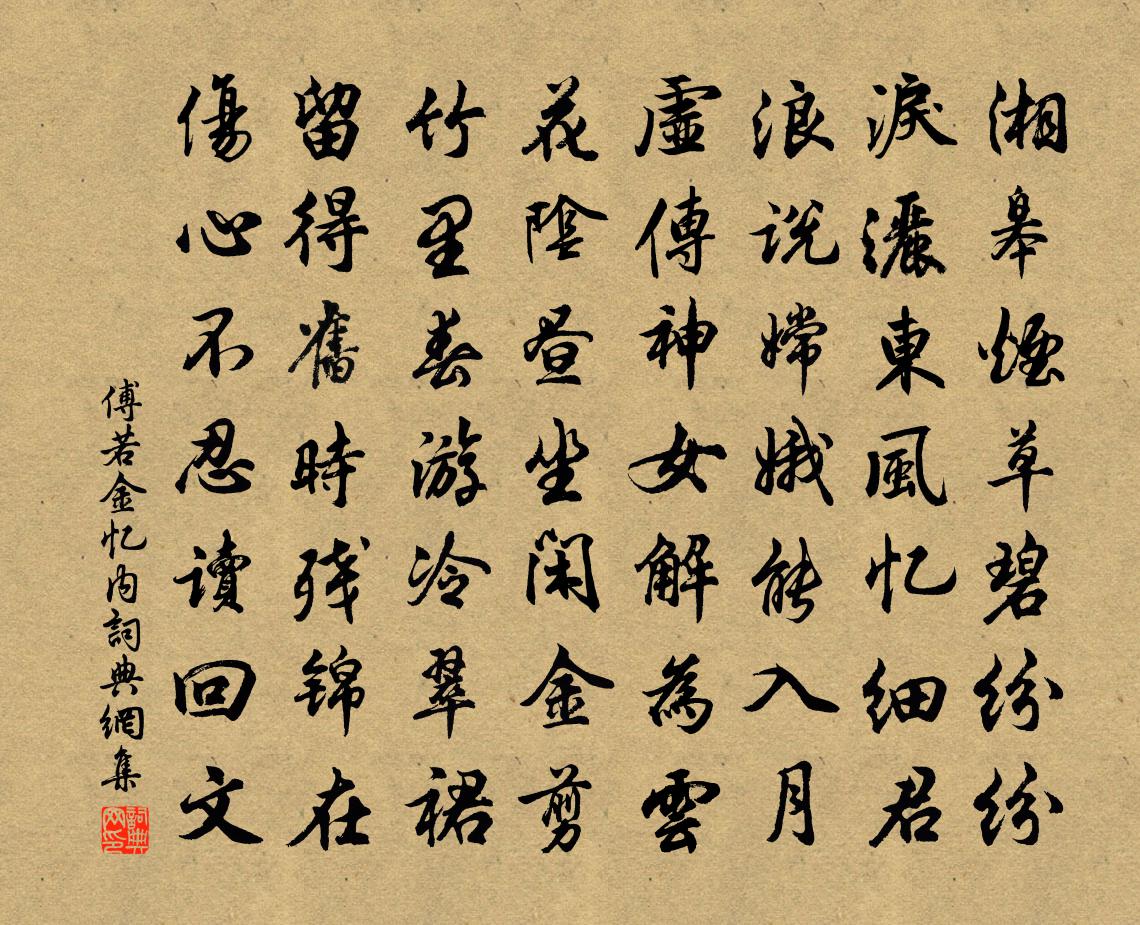 湘皋煙草碧紛紛
淚灑東風忆細君
浪説嫦娥能入月
虛傳神女解為雲
花陰昼坐閑金剪
竹里春游冷翠裙
留得舊時残錦在
傷心不忍讀回文
傅若金忆内詞典網集
詞典网印